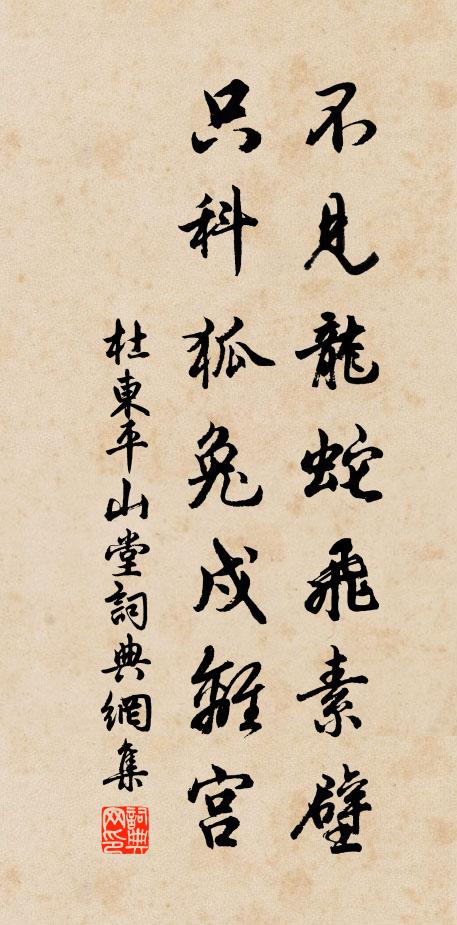 不見龍蛇飛素壁
只科狐兔戍離宮
杜東平山堂詞典網集
詞典網印